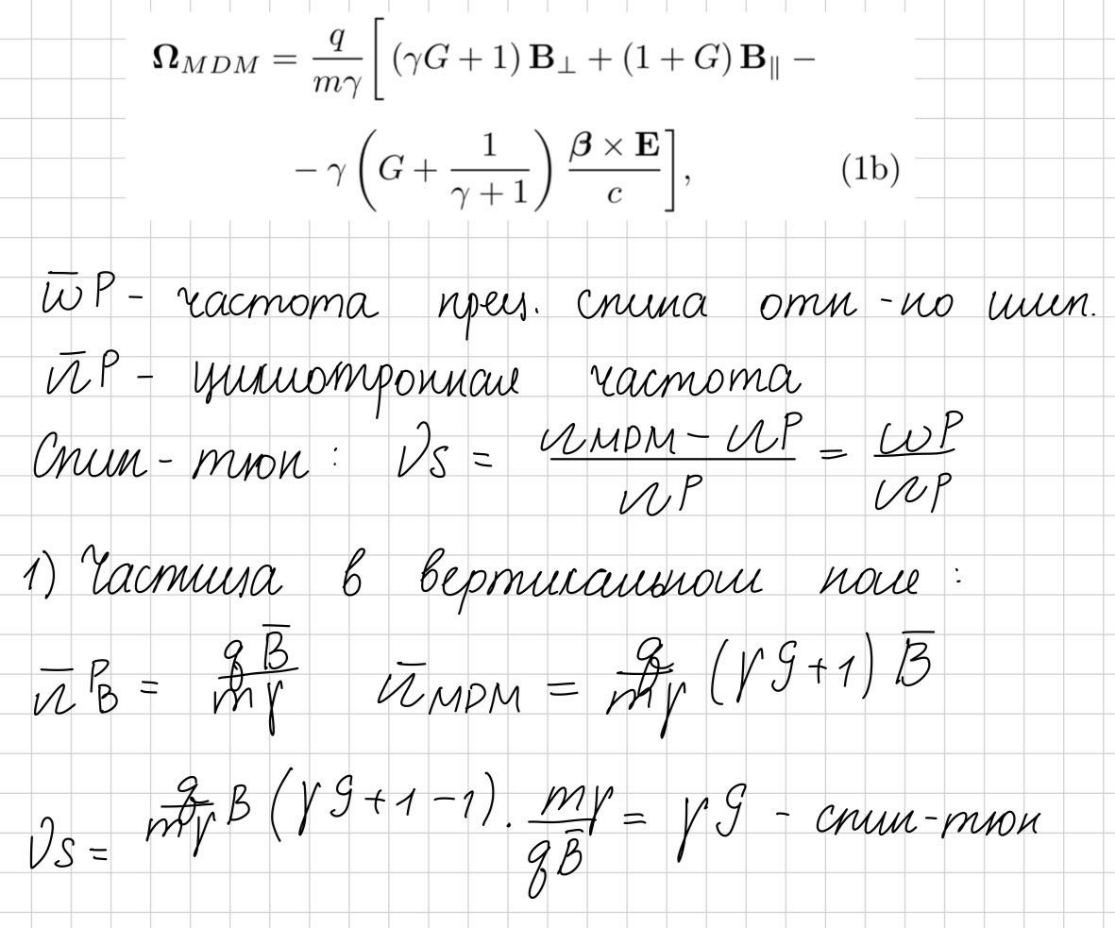 Ω_{MDM} = \frac{q}{mγ} [ (γG + 1) B_⊥ + (1 + G) B_∥ −
− γ ( G + \frac{1}{γ + 1} ) \frac{β × E}{c} ], (1b)
ω̄^P - частота прец. спина отн-но имп.
Ω̄^P - циклотронная частота
Спин-тюн : ν_S = \frac{Ω_{MDM} - Ω^P}{Ω^P} = \frac{ω^P}{Ω^P}
1) Частица в вертикальном поле :
Ω̄^P_B = \frac{q B̄}{mγ} Ω̄_{MDM} = \frac{q}{mγ} (γG+1) B̄
ν_S = \frac{q}{mγ} B (γG+1-1) · \frac{mγ}{qB̄} = γG - спин-тюн